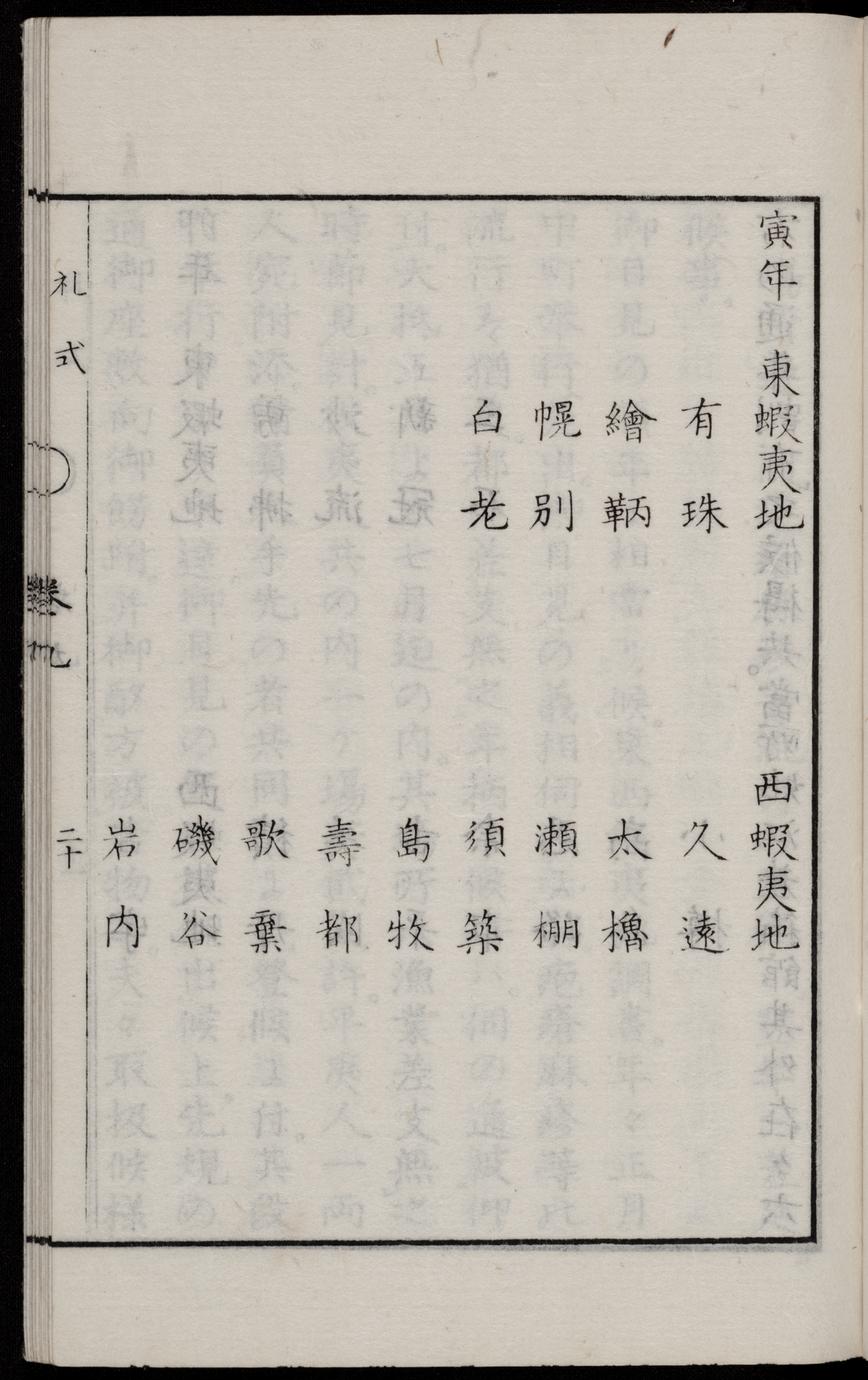 寅年 東蝦夷地 西蝦夷地
有珠 久遠
繪鞆 太櫓
幌別 瀬棚
白老 須築
島牧
壽都
歌棄
磯谷
岩内
礼式 巻九 二十